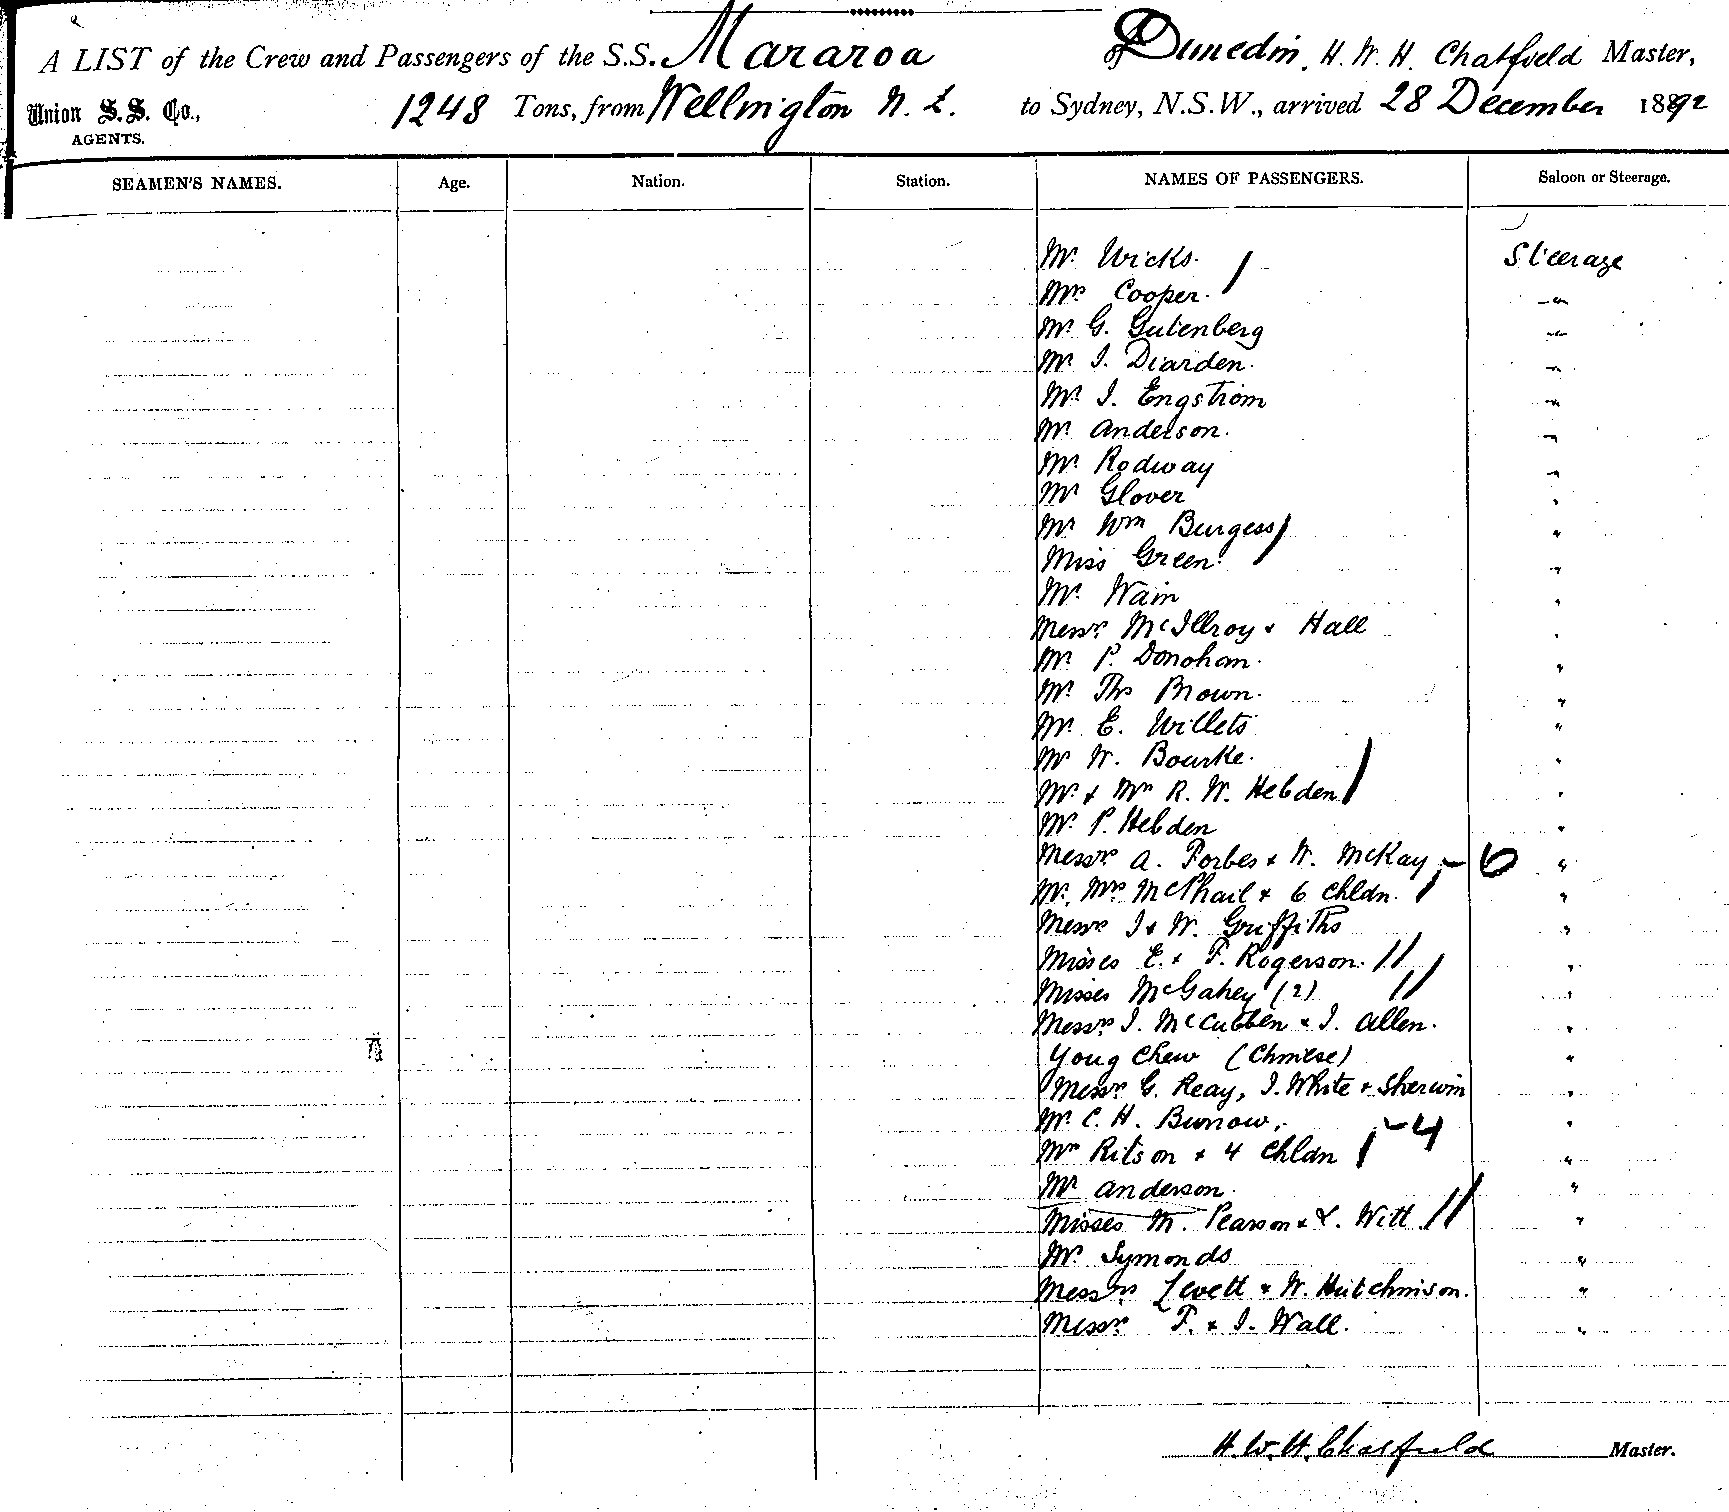 A LIST of the Crew and Passengers of the S.S. Mararoa of Dunedin, H. W. H. Chatfield Master,
Union S.S. Co., 1248 Tons, from Wellington N. Z. to Sydney, N.S.W., arrived 28 December 1892
AGENTS.
SEAMEN'S NAMES. Age. Nation. Station. NAMES OF PASSENGERS. Saloon or Steerage.
Mr. Wicks. Steerage
Mrs Cooper. "
Mr G. Gutenberg "
Mr J. Diarden. "
Mr. J. Engstrom "
Mr Anderson. "
Mr. Rodway "
Mr Glover "
Mr. Wm Burgess "
Miss Green "
Mr. Wain "
Messrs McIllroy & Hall "
Mr P. Donohan. "
Mr. Ths Brown. "
Mr. E. Willets "
Mr W. Bourke. "
Mr. & Mrs R. W. Hebden "
Mr. P. Hebden "
Messrs A. Forbes & W. McKay - 6 "
Mr. Mrs McPhail & 6 Chldn. "
Messrs J & W. Griffiths "
Misses E. & F. Rogerson. "
Misses McGahey (2) "
Messrs J. McCubben & J. Allen. "
Young Chew (Chinese) "
Messrs G. Reay, J. White & Sherwin "
Mr. C. H. Burrow. - 4 "
Mrs Ritson & 4 Chldn "
Mr Anderson. "
Misses M. Pearson & L. Witt "
Mr. Symonds "
Messrs Levett & W. Hutchinson. "
Messrs F. & J. Wall. "
H. W. H. Chatfield Master.